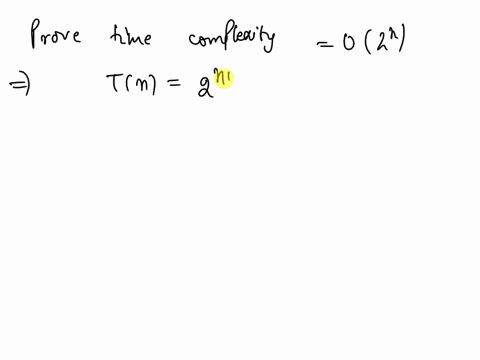 Prove time complexity = O(2^n)
=> T(n) = 2^n